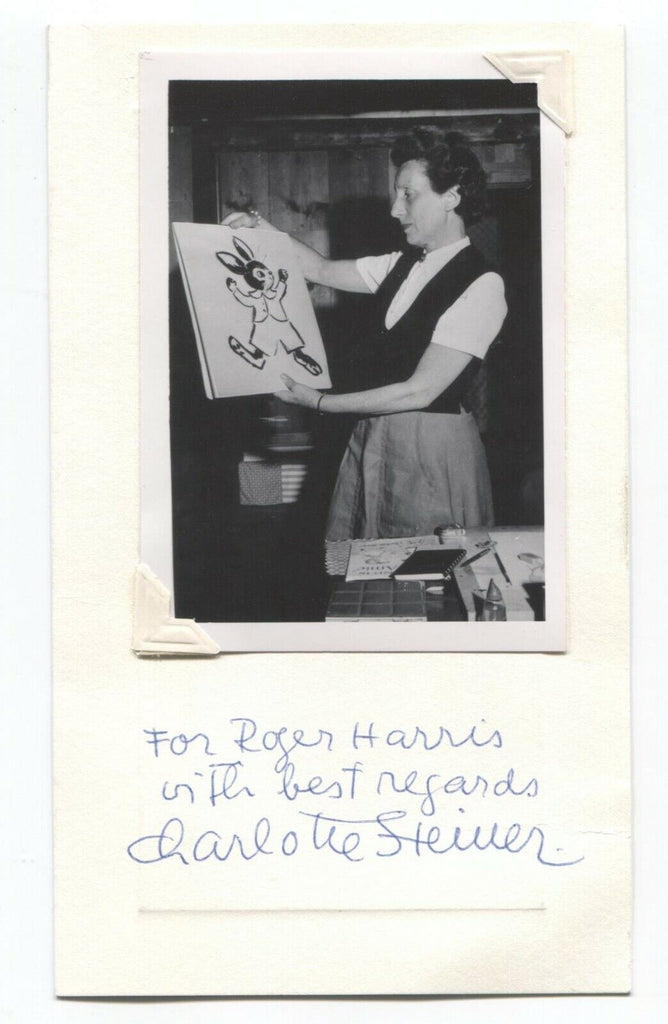 For Roger Harris
with best regards
Charlotte Steiner.